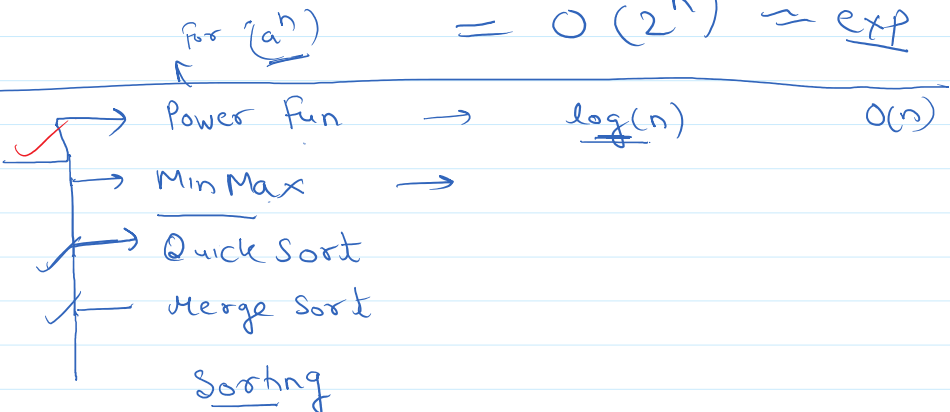 for (aⁿ) = O(2ⁿ) ≈ exp
Power fun → log(n) O(n)
Min Max →
Quick Sort
Merge Sort
Sorting